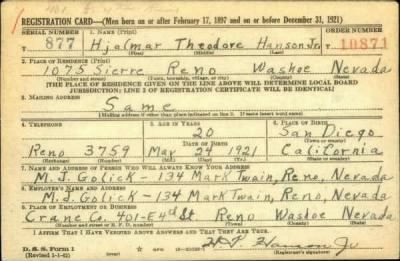 REGISTRATION CARD—(Men born on or after February 17, 1897 and on or before December 31, 1921)
SERIAL NUMBER 1. NAME (Print) ORDER NUMBER
T 877 Hjalmar Theodore Hanson Jr. 10871
(First) (Middle) (Last)
2. PLACE OF RESIDENCE (Print)
1075 Sierre Reno Washoe Nevada
(Number and street) (Town, township, village, or city) (County) (State)
[THE PLACE OF RESIDENCE GIVEN ON THE LINE ABOVE WILL DETERMINE LOCAL BOARD
JURISDICTION; LINE 2 OF REGISTRATION CERTIFICATE WILL BE IDENTICAL]
3. MAILING ADDRESS
Same
[Mailing address if other than place indicated on line 2. If same insert word same]
4. TELEPHONE 5. AGE IN YEARS 6. PLACE OF BIRTH
20 San Diego
DATE OF BIRTH (Town or county)
Reno 3759 May 24 1921 California
(Exchange) (Number) (Mo.) (Day) (Yr.) (State or country)
7. NAME AND ADDRESS OF PERSON WHO WILL ALWAYS KNOW YOUR ADDRESS
M. J. Golick - 134 Mark Twain, Reno, Nevada
8. EMPLOYER'S NAME AND ADDRESS
M. J. Golick - 134 Mark Twain, Reno, Nevada
9. PLACE OF EMPLOYMENT OR BUSINESS
Crane Co. 401-E 4th St Reno Washoe Nevada
(Number and street or R. F. D. number) (Town) (County) (State)
I AFFIRM THAT I HAVE VERIFIED ABOVE ANSWERS AND THAT THEY ARE TRUE.
D. S. S. Form 1 H. T. Hanson Jr
(Revised 1-1-42) (Registrant's signature)